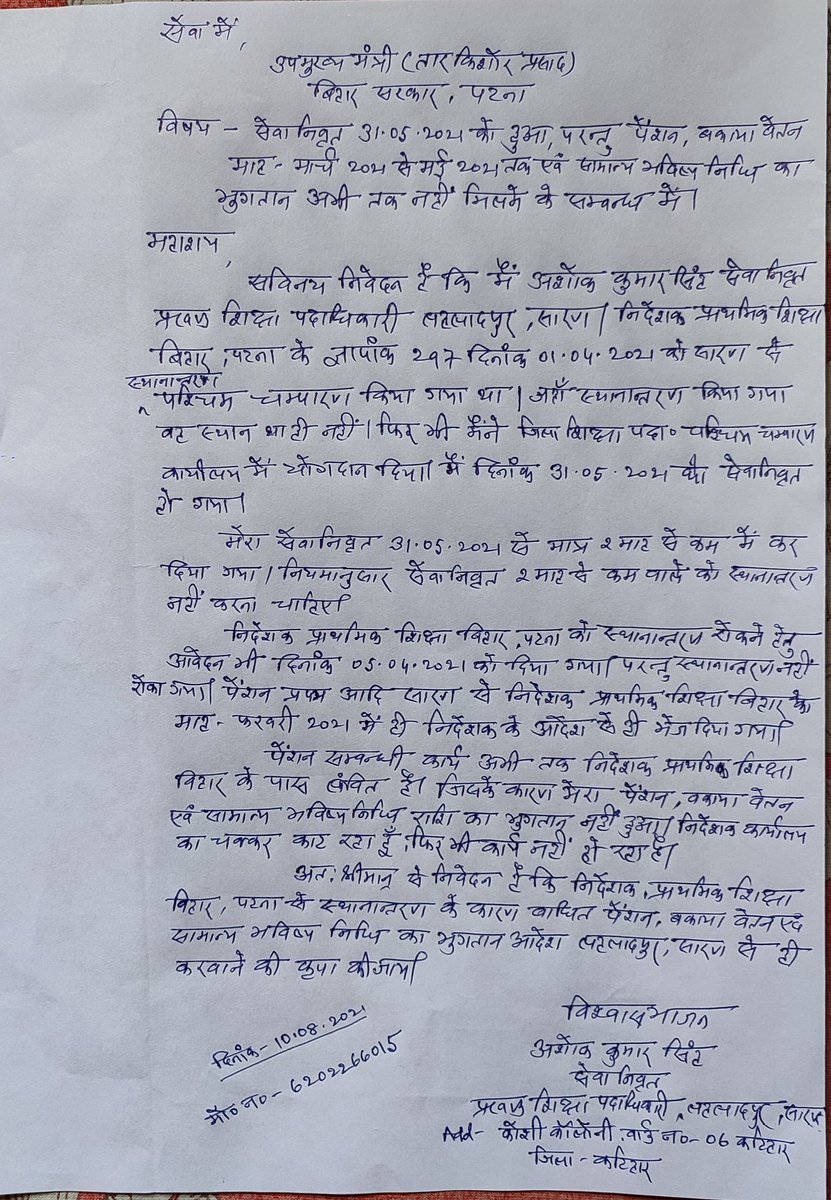 सेवा में,
उपमुख्य मंत्री (तार किशोर प्रसाद)
बिहार सरकार, पटना
विषय - सेवा निवृत 31.05.2021 को हुआ, परन्तु पेंशन, बकाया वेतन
माह - मार्च 2021 से मई 2021 तक एवं सामान्य भविष्य निधि का
भुगतान अभी तक नहीं मिलने के सम्बन्ध में।
महाशय,
सविनय निवेदन है कि मैं अशोक कुमार सिंह सेवा निवृत
प्रखण्ड शिक्षा पदाधिकारी लहलादपुर, सारण। निर्देशक प्राथमिक शिक्षा
बिहार, पटना के ज्ञापांक 297 दिनांक 01.04.2021 को सारण से
स्थानान्तरण
पश्चिम चम्पारण किया गया था। जहाँ स्थानान्तरण किया गया
वह स्थान था ही नहीं। फिर भी मैंने जिला शिक्षा पदा॰ पश्चिम चम्पारण
कार्यालय में योगदान दिया। मैं दिनांक 31.05.2021 को सेवानिवृत
हो गया।
मेरा सेवा निवृत 31.05.2021 से मात्र 2 माह से कम में कर
दिया गया। नियमानुसार सेवा निवृत 2 माह से कम वाले को स्थानान्तरण
नहीं करना चाहिए।
निर्देशक प्राथमिक शिक्षा बिहार, पटना को स्थानान्तरण रोकने हेतु
आवेदन भी दिनांक 05.04.2021 को दिया गया। परन्तु स्थानान्तरण नहीं
रोका गया। पेंशन प्रपत्र आदि सारण से निर्देशक प्राथमिक शिक्षा बिहार को
माह - फरवरी 2021 में ही निर्देशक के आदेश से ही भेज दिया गया।
पेंशन सम्बन्धी कार्य अभी तक निर्देशक प्राथमिक शिक्षा
बिहार के पास लंबित है। जिसके कारण मेरा पेंशन, बकाया वेतन
एवं सामान्य भविष्य निधि राशि का भुगतान नहीं हुआ। निर्देशक कार्यालय
का चक्कर काट रहा हूँ, फिर भी कार्य नहीं हो रहा है।
अत: श्रीमान् से निवेदन है कि निर्देशक, प्राथमिक शिक्षा
बिहार, पटना से स्थानान्तरण के कारण बाधित पेंशन, बकाया वेतन एवं
सामान्य भविष्य निधि का भुगतान आदेश लहलादपुर, सारण से ही
करवाने की कृपा की जाय।
विश्वासभाजन
अशोक कुमार सिंह
सेवा निवृत
प्रखण्ड शिक्षा पदाधिकारी, लहलादपुर, सारण
Add - कोशी कॉलोनी, वार्ड न० - 06 कटिहार
जिला - कटिहार
दिनांक - 10.08.2021
मो० न० - 6202266015